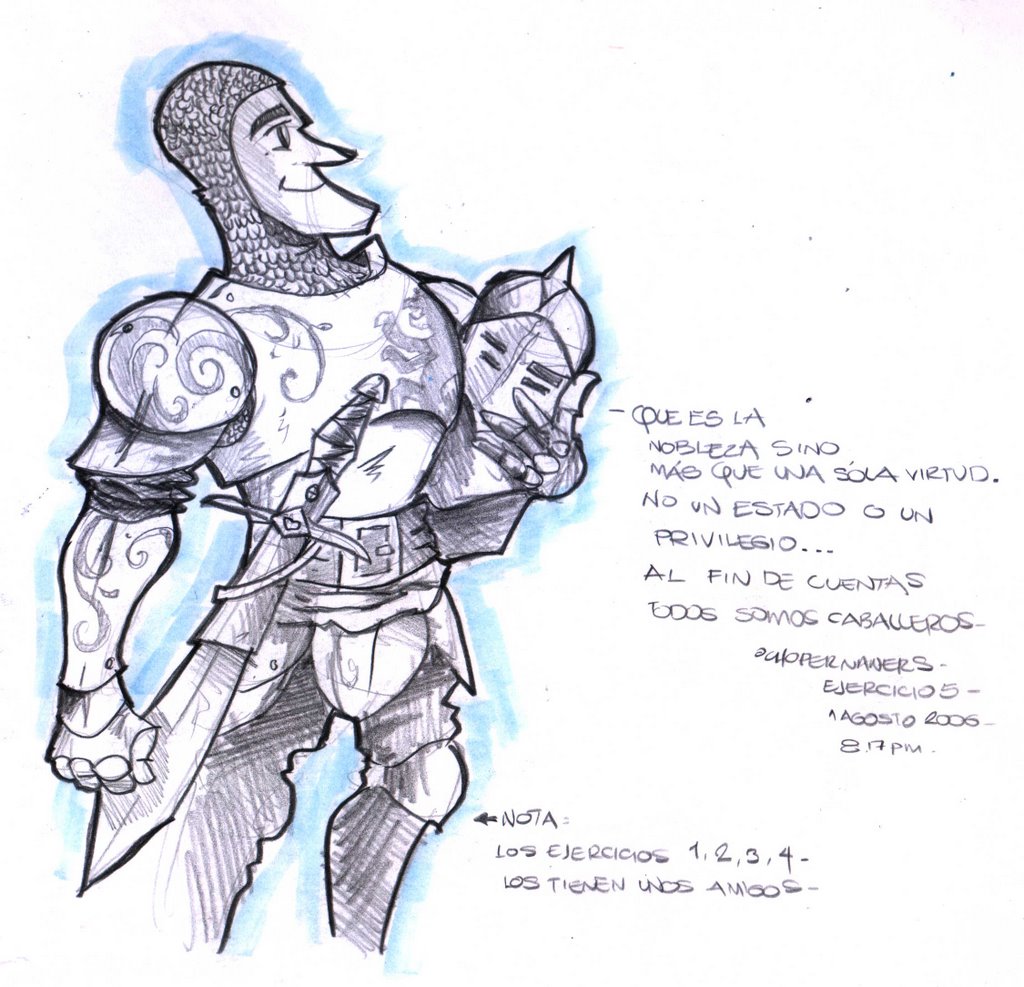 - QUE ES LA
NOBLEZA SINO
MÁS QUE UNA SÓLA VIRTUD.
NO UN ESTADO O UN
PRIVILEGIO...
AL FIN DE CUENTAS
TODOS SOMOS CABALLEROS-
EJERCICIO 5 -
1 AGOSTO 2006 -
8.17 PM.
← NOTA:
LOS EJERCICIOS 1, 2, 3, 4 -
LOS TIENEN UNOS AMIGOS -